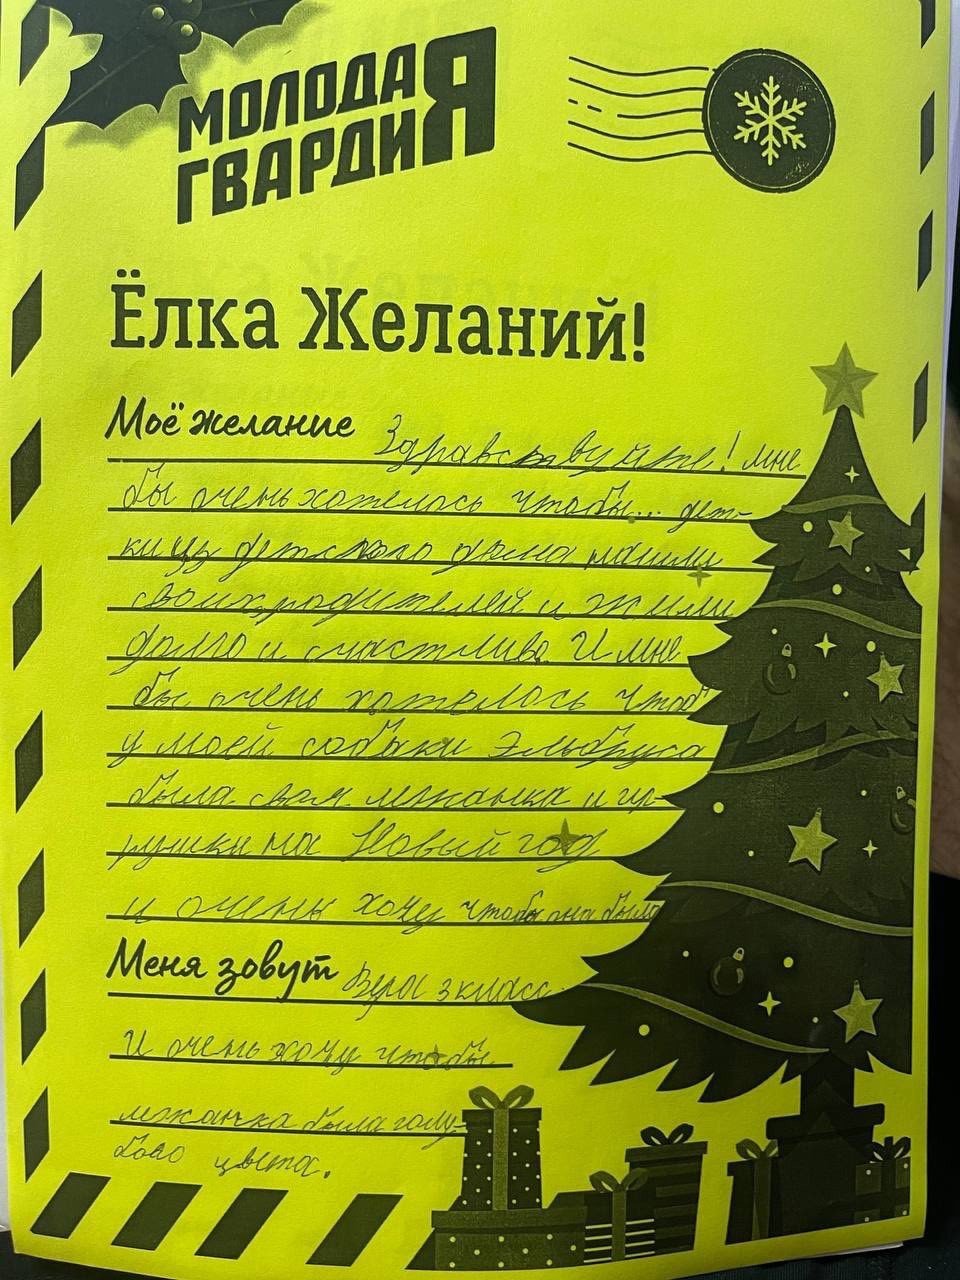 МОЛОДАЯ
ГВАРДИЯ
Ёлка Желаний!
Моё желание Здравствуйте! мне
бы очень хотелось чтобы... дет-
ки из детского дома нашли
своих родителей и жили
долго и счастливо. И мне
бы очень хотелось чтоб
у моей собаки Эльбруса
была своя лежанка и иг-
рушки на Новый год
и очень хочу чтобы она была
Меня зовут Вера 3 класс
И очень хочу чтобы
лежанка была голу-
бого цвета.